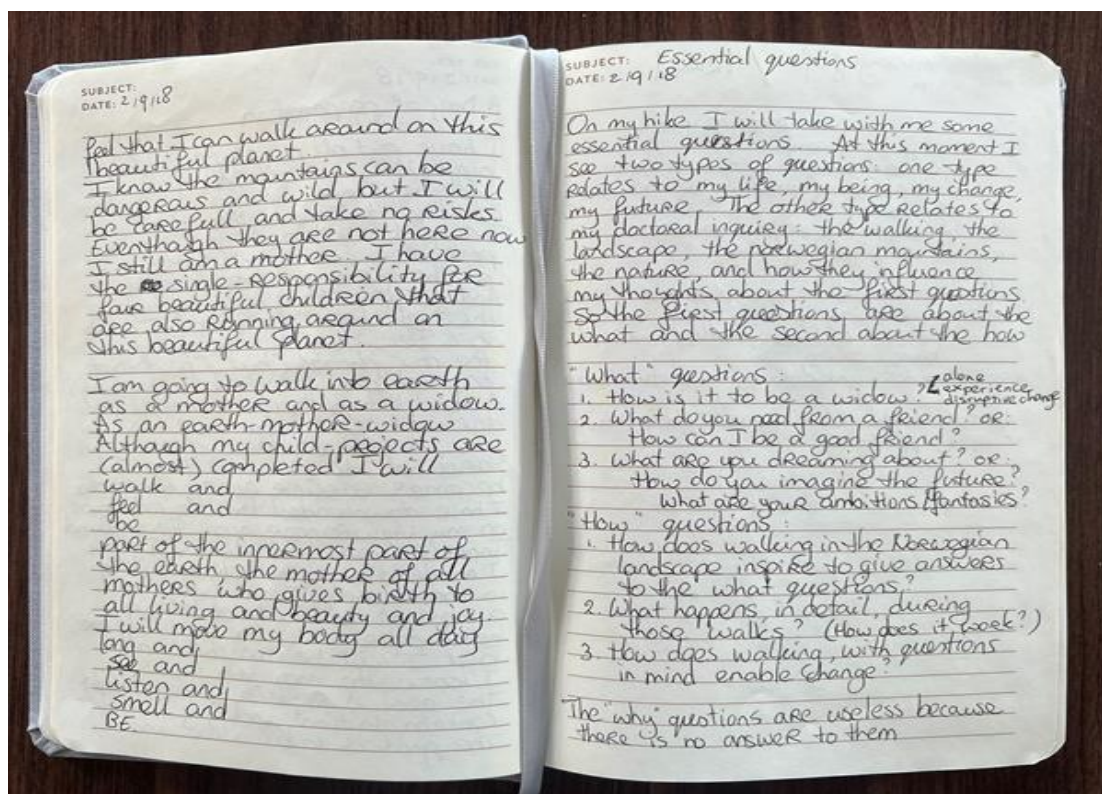 SUBJECT:
DATE: 2/9/18
feel that I can walk around on this
beautiful planet.
I know the mountains can be
dangerous and wild but I will
be carefull and take no risks.
Eventhough they are not here now
I still am a mother. I have
the single-responsibility for
four beautiful children that
are also running around on
this beautiful planet.
I am going to walk into earth
as a mother and as a widow.
As an earth-mother-widow
Although my child-projects are
(almost) completed I will
walk and
feel and
be
part of the innermost part of
the earth, the mother of all
mothers who gives birth to
all living and beauty and joy.
I will move my body all day
long and
see and
listen and
smell and
BE.
SUBJECT: Essential questions
DATE: 2/9/18
On my hike I will take with me some
essential questions. At this moment I
see two types of questions: one type
relates to my life, my being, my change,
my future. The other type relates to
my doctoral inquiry: the walking, the
landscape, the norwegian mountains,
the nature, and how they influence
my thoughts about the first questions.
So the first questions are about the
what and the second about the how
"What" questions:
1. How is it to be a widow?
alone
experience
disruptive change
2. What do you need from a friend? or:
How can I be a good friend?
3. What are you dreaming about? or:
How do you imagine the future?
What are your ambitions/fantasies?
"How" questions:
1. How does walking in the Norwegian
landscape inspire to give answers
to the what questions?
2. What happens, in detail, during
those walks? (How does it work?)
3. How does walking, with questions
in mind enable change?
The "why" questions are useless because
there is no answer to them